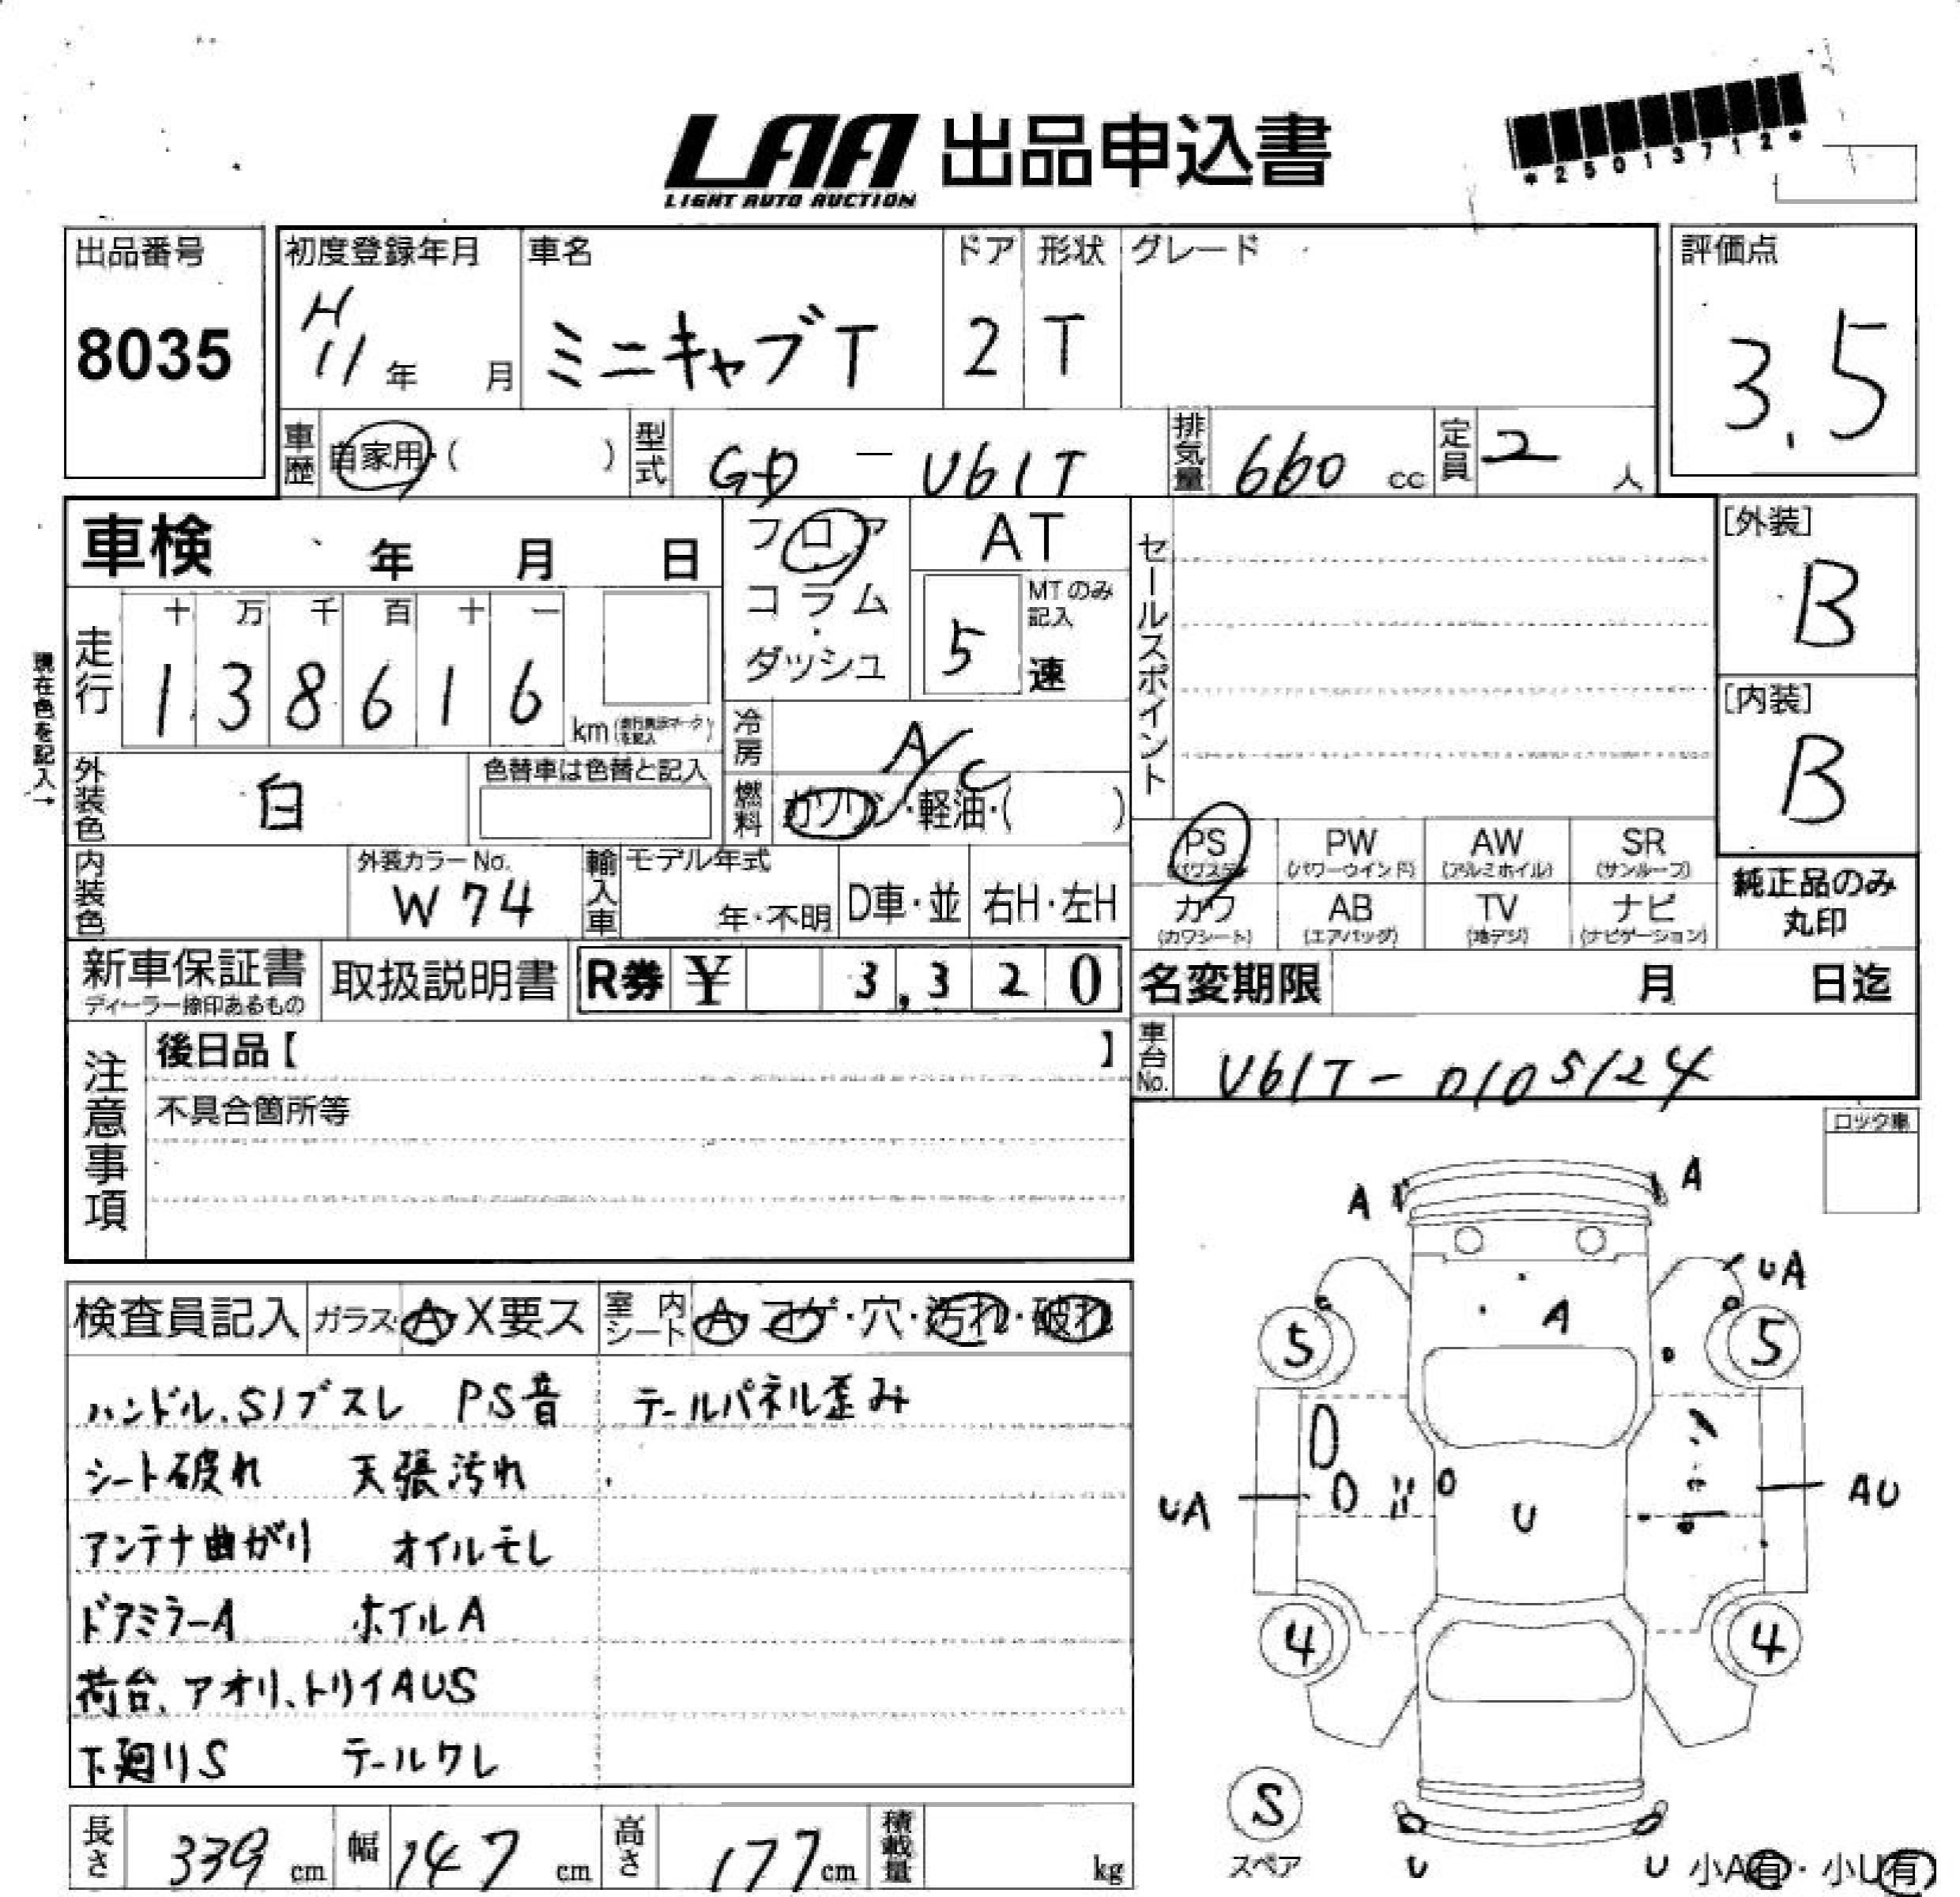 LAA 出品申込書
LIGHT AUTO AUCTION
*25013712*
出品番号 初度登録年月 車名 ドア 形状 グレード 評価点
8035 H11年 月 ミニキャブT 2 T 3.5
車歴 自家用・( ) 型式 GD-U61T 排気量 660 cc 定員 2 人
車検 年 月 日 フロア AT セールスポイント [外装]
コラム・ダッシュ 5 MTのみ記入 速 B
現在色を記入→
走行 十 万 千 百 十 一
1 3 8 6 1 6 km
冷房 A/C [内装]
外装色 白 色替車は色替と記入 燃料 ガソリン・軽油・( ) B
PS (パワステ) PW (パワーウインド) AW (アルミホイル) SR (サンルーフ)
内装色 外装カラーNo. W74 輸入車 モデル年式 年・不明 D車・並 右H・左H
カワ (カワシート) AB (エアバッグ) TV (地デジ) ナビ (ナビゲーション) 純正品のみ丸印
新車保証書 ディーラー捺印あるもの 取扱説明書 R券 ¥ 3,320 名変期限 月 日迄
注意事項 後日品【 】 車台No. U61T-0105124
不具合箇所等
ロック車
A A
UA
A
5 5
検査員記入 ガラス A・X要ス 室内シート A・コゲ・穴・汚れ・破れ
ハンドル、S/ブスレ PS音 テールパネル歪み
シート破れ 天張汚れ
アンテナ曲がり オイルモレ
UA U AU
ドアミラーA ホイルA
4 4
荷台、アオリ、トリイAUS
下廻りS テールワレ
S
スペア U U 小A有・小U有
長さ 339 cm 幅 147 cm 高さ 177 cm 積載量 kg